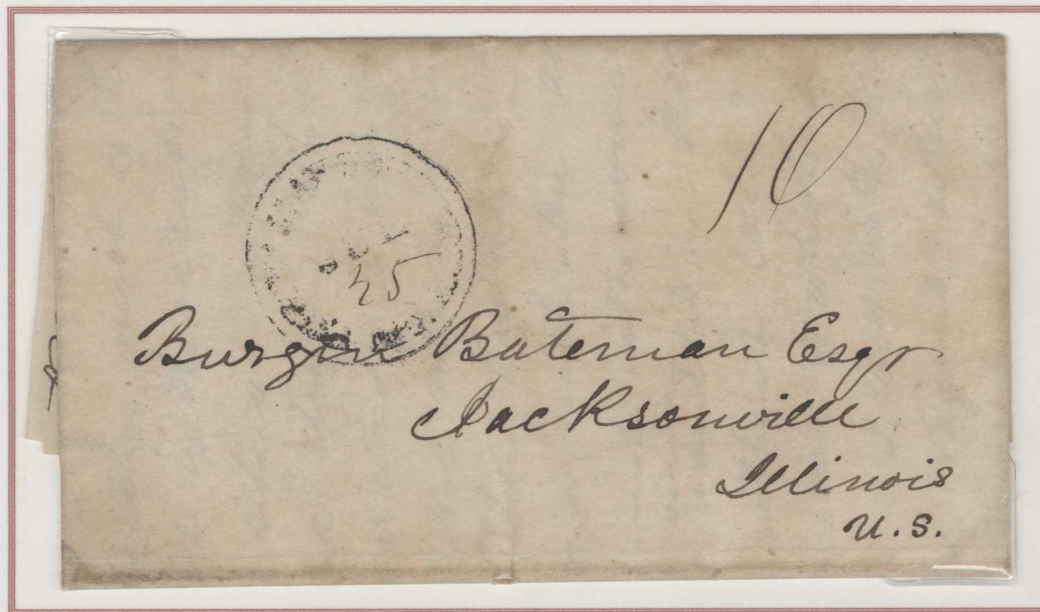 10
JUL
25
Burgin Bateman Esqr
Jacksonville
Illinois
U.S.